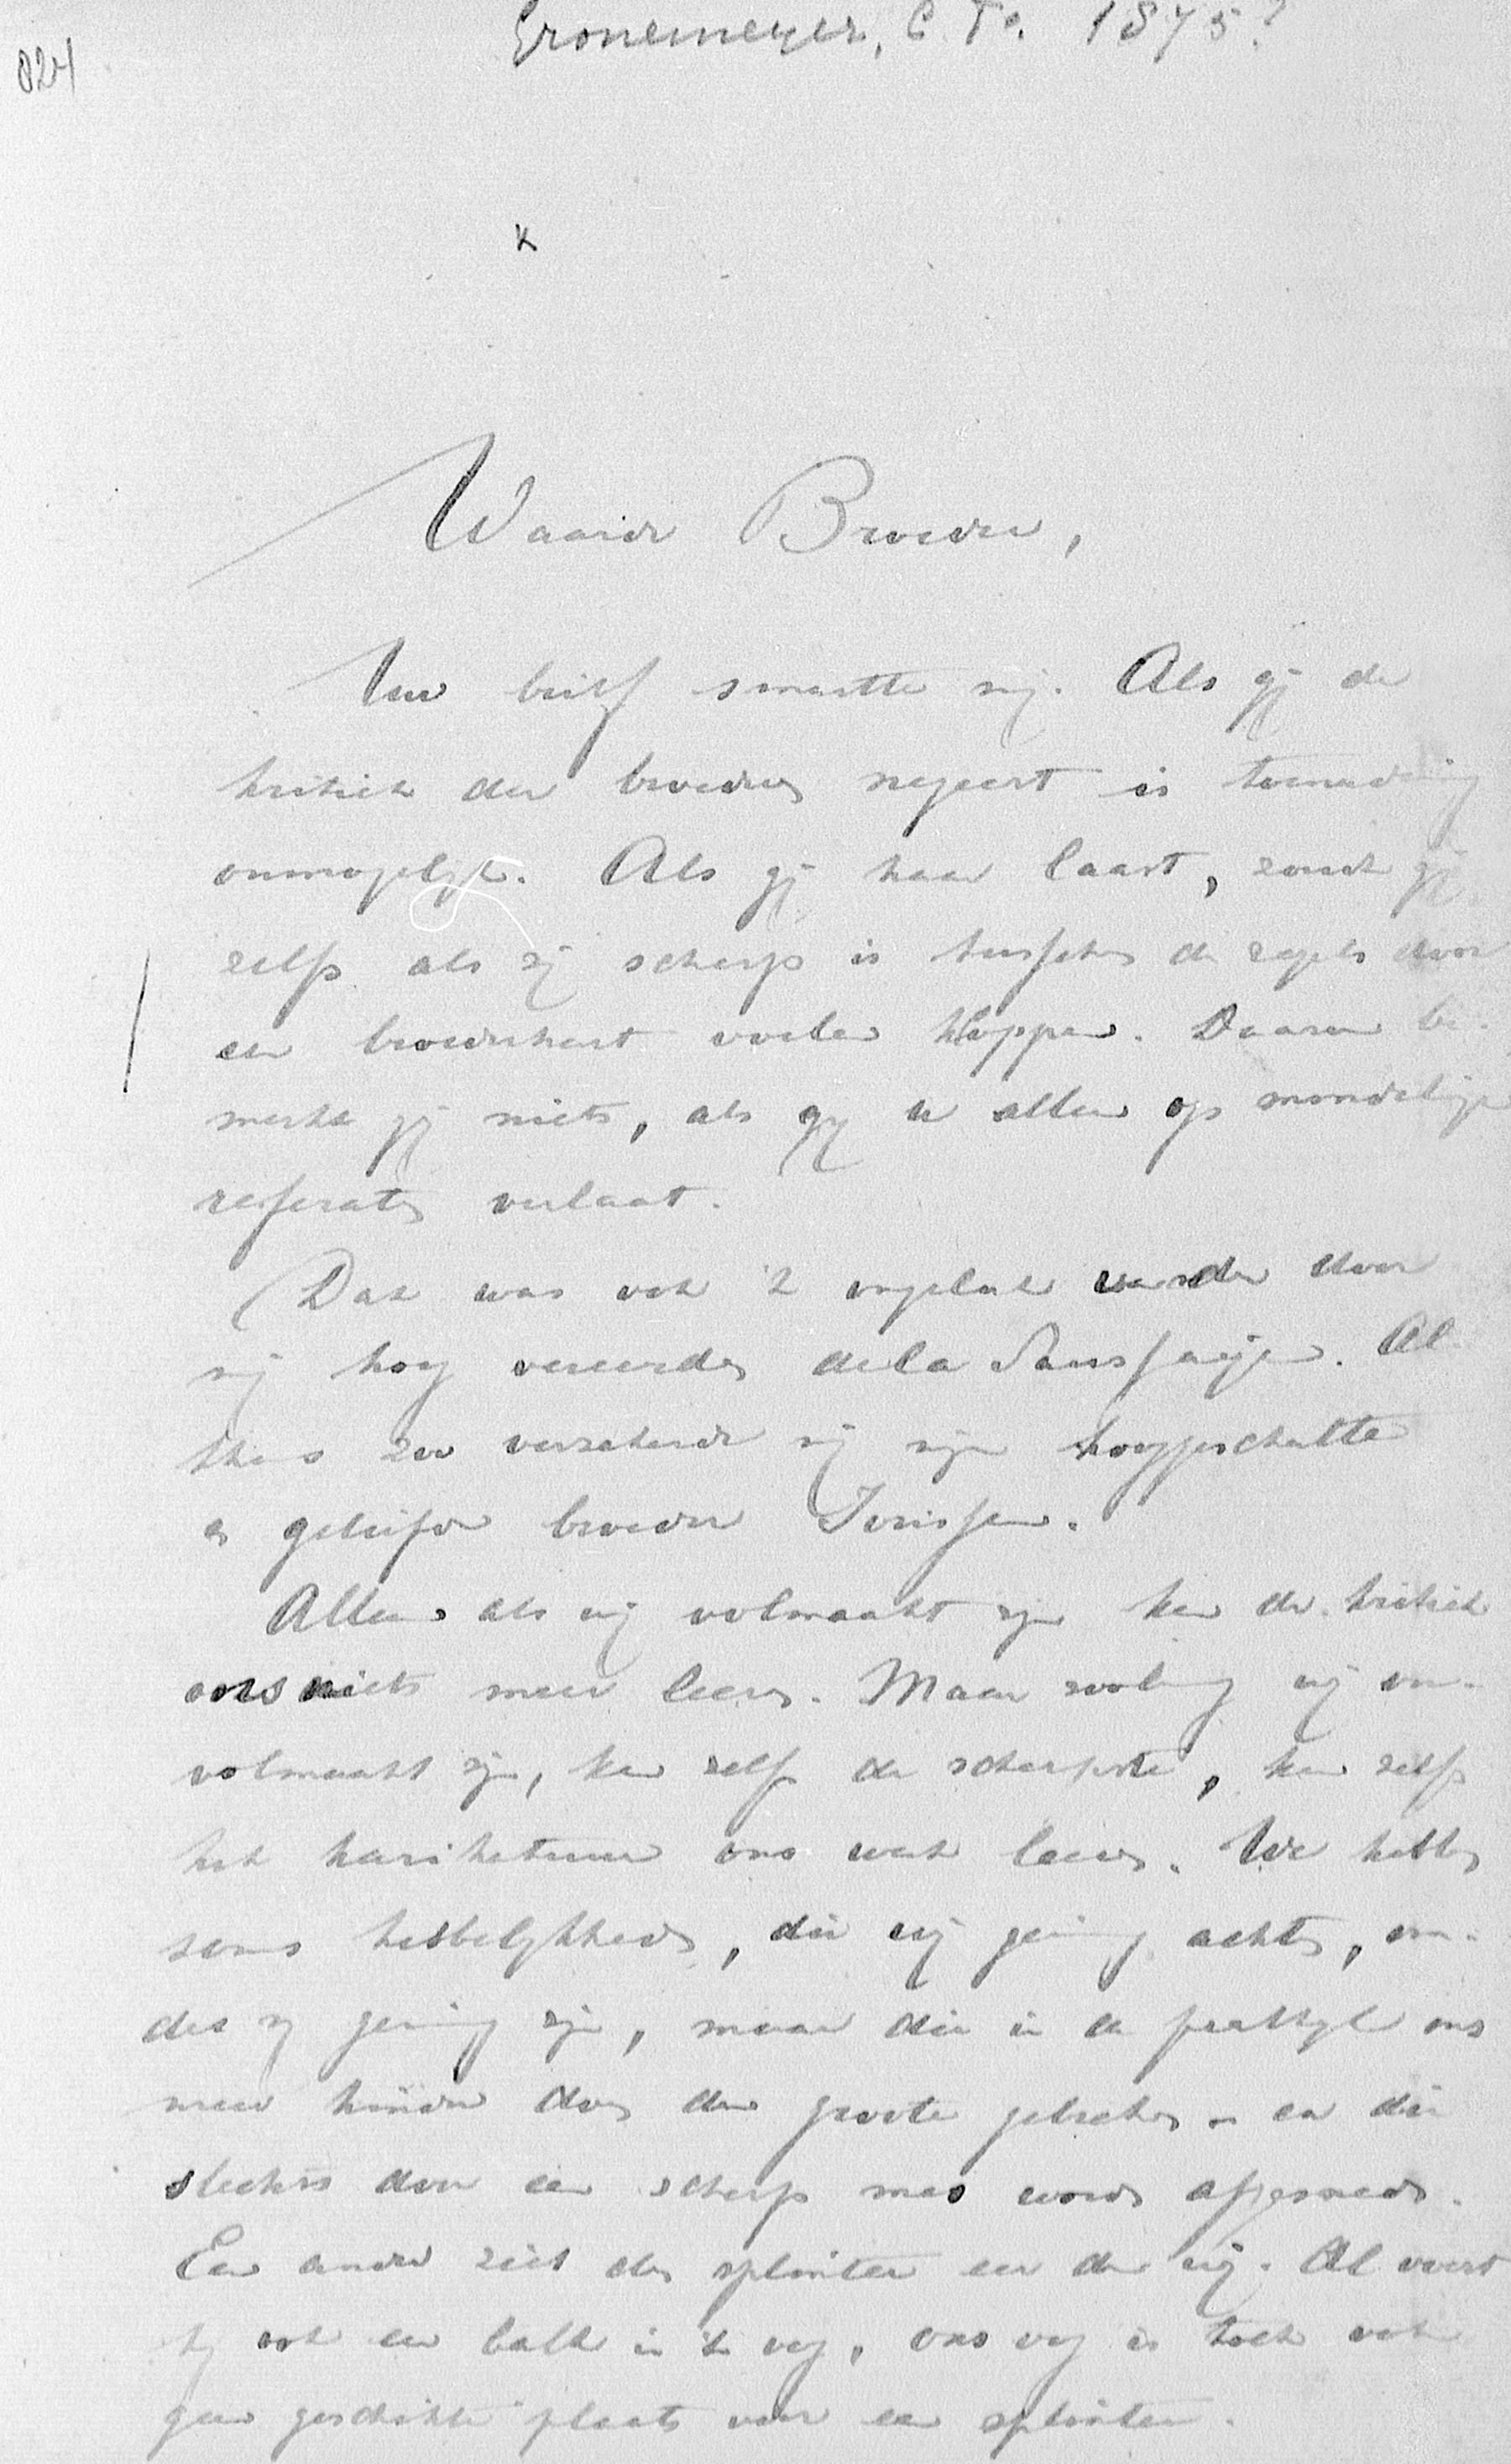 Gronemeyer, C. Fr. 1875?
024
Waarde Broeder,
Uw brief smartte mij. Als gij de
kritiek der broeders negeert is toenadering
onmogelijk. Als gij haar laast, zoudt gij
zelfs als zij scherp is tusschen de regels door
een broederhart voelen kloppen. Daarvan be-
merkt gij niets, als gij u alleen op mondelinge
referaten verlaat.
Dat was ook 't ongeluk van den door
mij hoog vereerden de la Saussaije. Al-
thans zoo verzekerde mij mijn hooggeschatte
en geliefde broeder Jorissen.
Alleen als wij volmaakt zijn kan de kritiek
ons niets meer leeren. Maar zoolang wij on-
volmaakt zijn, kan zelfs de scherpste, kan zelfs
het karikatuur ons wat leeren. We hebben
soms hebbelijkheden, die wij gering achten, om-
dat zij gering zijn, maar die in de praktijk ons
meer hinderen dan den groote gebreken - en die
slechts door een scherp mes worden afgesneden.
Een ander ziet den splinter eer dan wij. Al voert
hij ook een balk in 't oog, ons oog is toch ook
geen geschikte plaats voor een splinter.